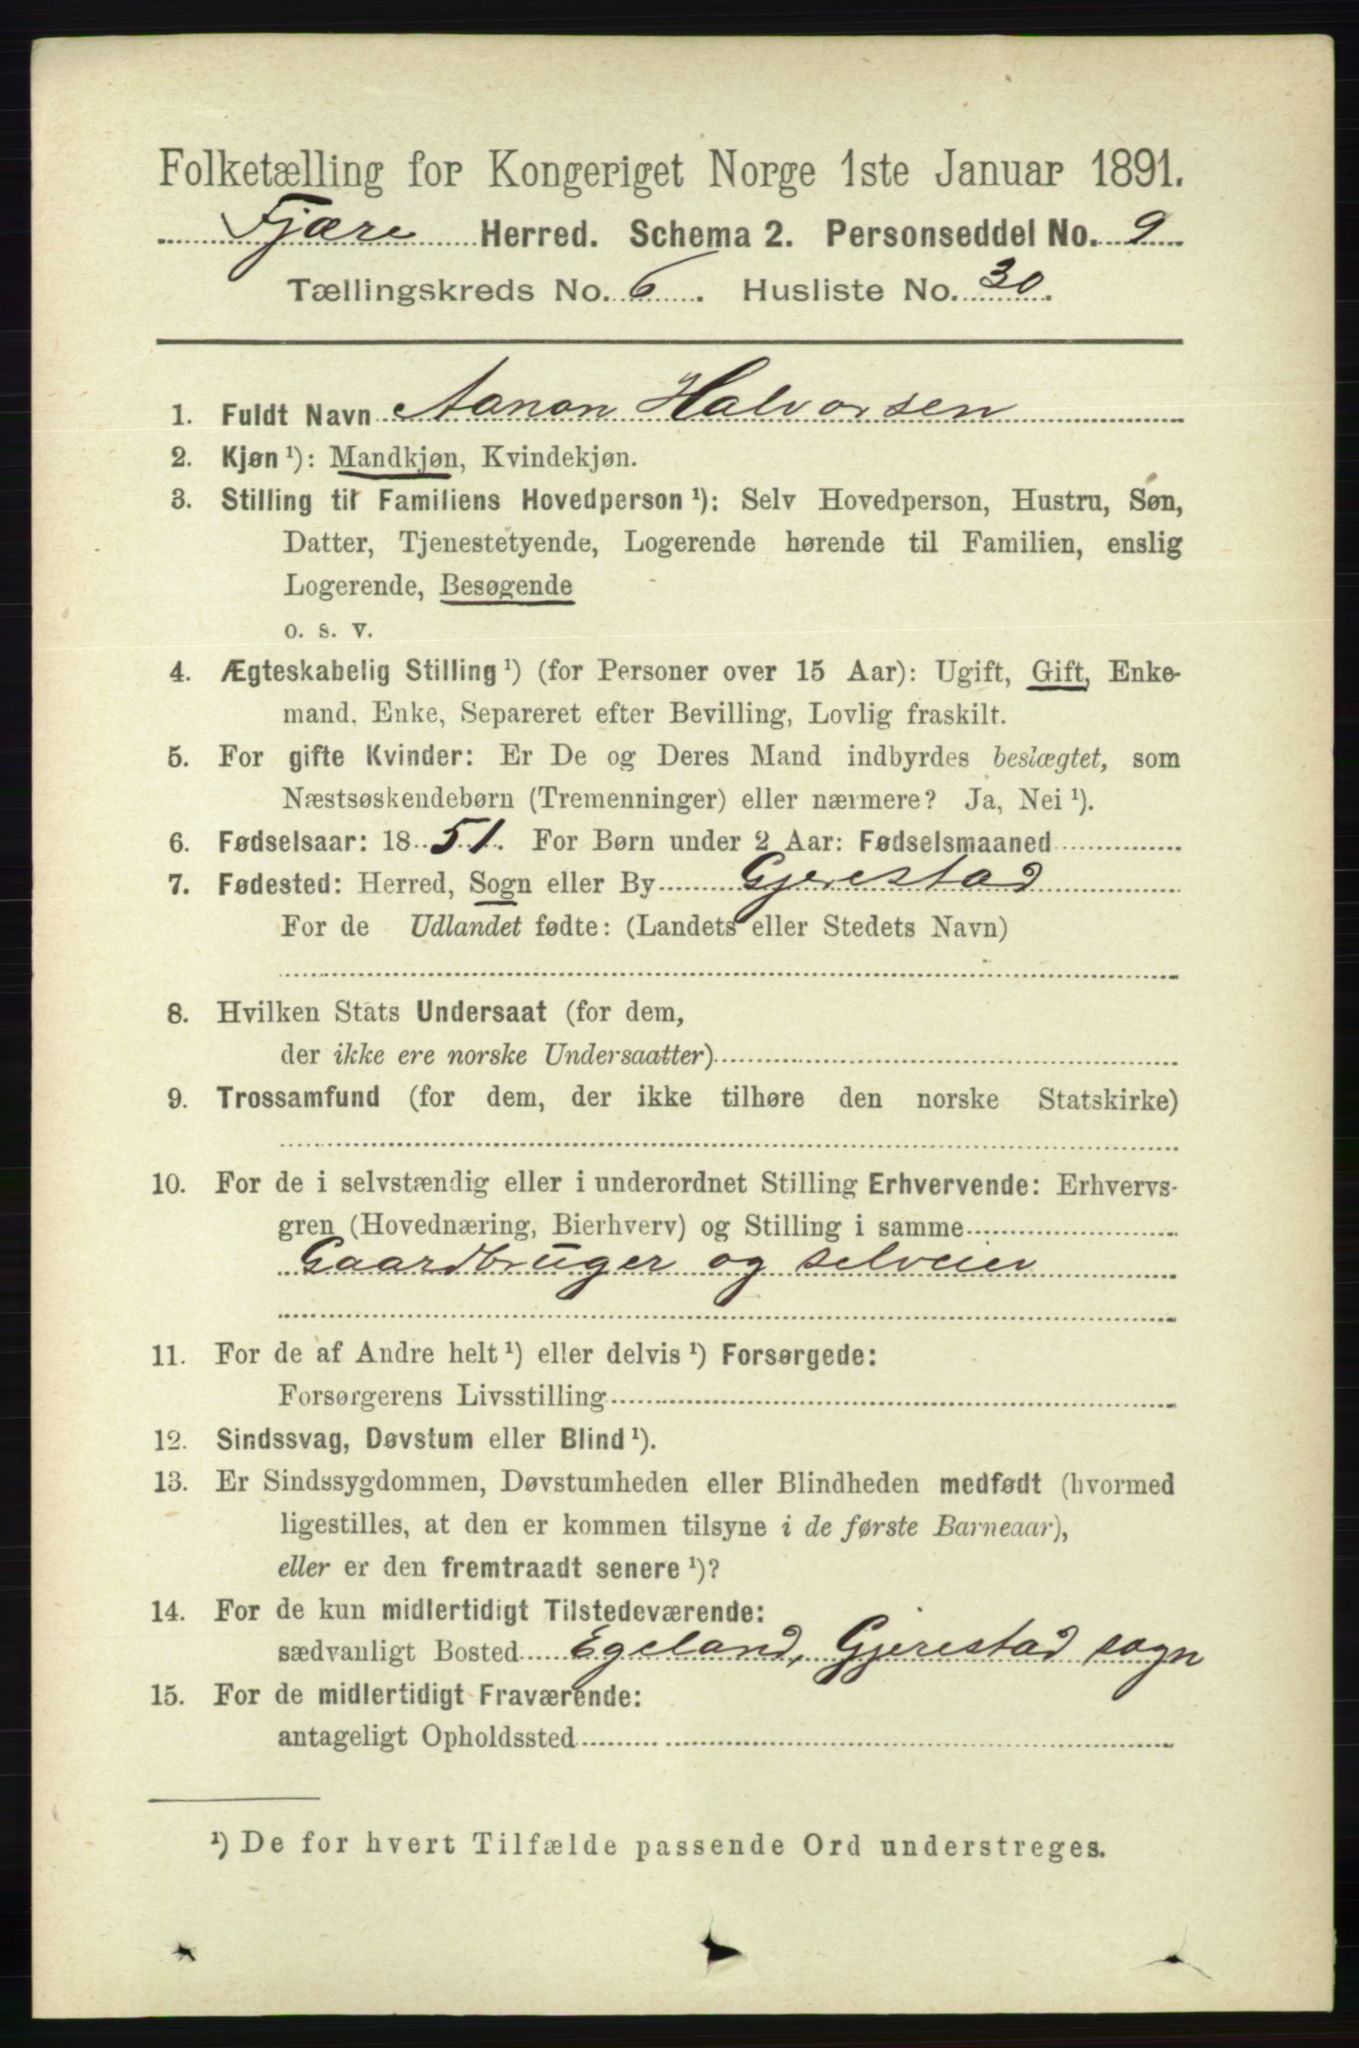 Folketælling for Kongeriget Norge 1ste Januar 1891.
Fjære Herred. Schema 2. Personseddel No. 9
Tællingskreds No. 6. Husliste No. 30.
1. Fuldt Navn Aanon Halvorsen
2. Kjøn ¹): Mandkjøn, Kvindekjøn.
3. Stilling til Familiens Hovedperson ¹): Selv Hovedperson, Hustru, Søn,
Datter, Tjenestetyende, Logerende hørende til Familien, enslig
Logerende, Besøgende
o. s. v.
4. Ægteskabelig Stilling ¹) (for Personer over 15 Aar): Ugift, Gift, Enke-
mand, Enke, Separeret efter Bevilling, Lovlig fraskilt.
5. For gifte Kvinder: Er De og Deres Mand indbyrdes beslægtet, som
Næstsøskendebørn (Tremenninger) eller nærmere? Ja, Nei ¹).
6. Fødselsaar: 1851. For Børn under 2 Aar: Fødselsmaaned
7. Fødested: Herred, Sogn eller By Gjerestad
For de Udlandet fødte: (Landets eller Stedets Navn)
8. Hvilken Stats Undersaat (for dem,
der ikke ere norske Undersaatter)
9. Trossamfund (for dem, der ikke tilhøre den norske Statskirke)
10. For de i selvstændig eller i underordnet Stilling Erhvervende: Erhvervs-
gren (Hovednæring, Bierhverv) og Stilling i samme
Gaardbruger og selveier
11. For de af Andre helt ¹) eller delvis ¹) Forsørgede:
Forsørgerens Livsstilling
12. Sindssvag, Døvstum eller Blind ¹).
13. Er Sindssygdommen, Døvstumheden eller Blindheden medfødt (hvormed
ligestilles, at den er kommen tilsyne i de første Barneaar),
eller er den fremtraadt senere ¹)?
14. For de kun midlertidigt Tilstedeværende:
sædvanligt Bosted Egeland, Gjerestad sogn
15. For de midlertidigt Fraværende:
antageligt Opholdssted
¹) De for hvert Tilfælde passende Ord understreges.